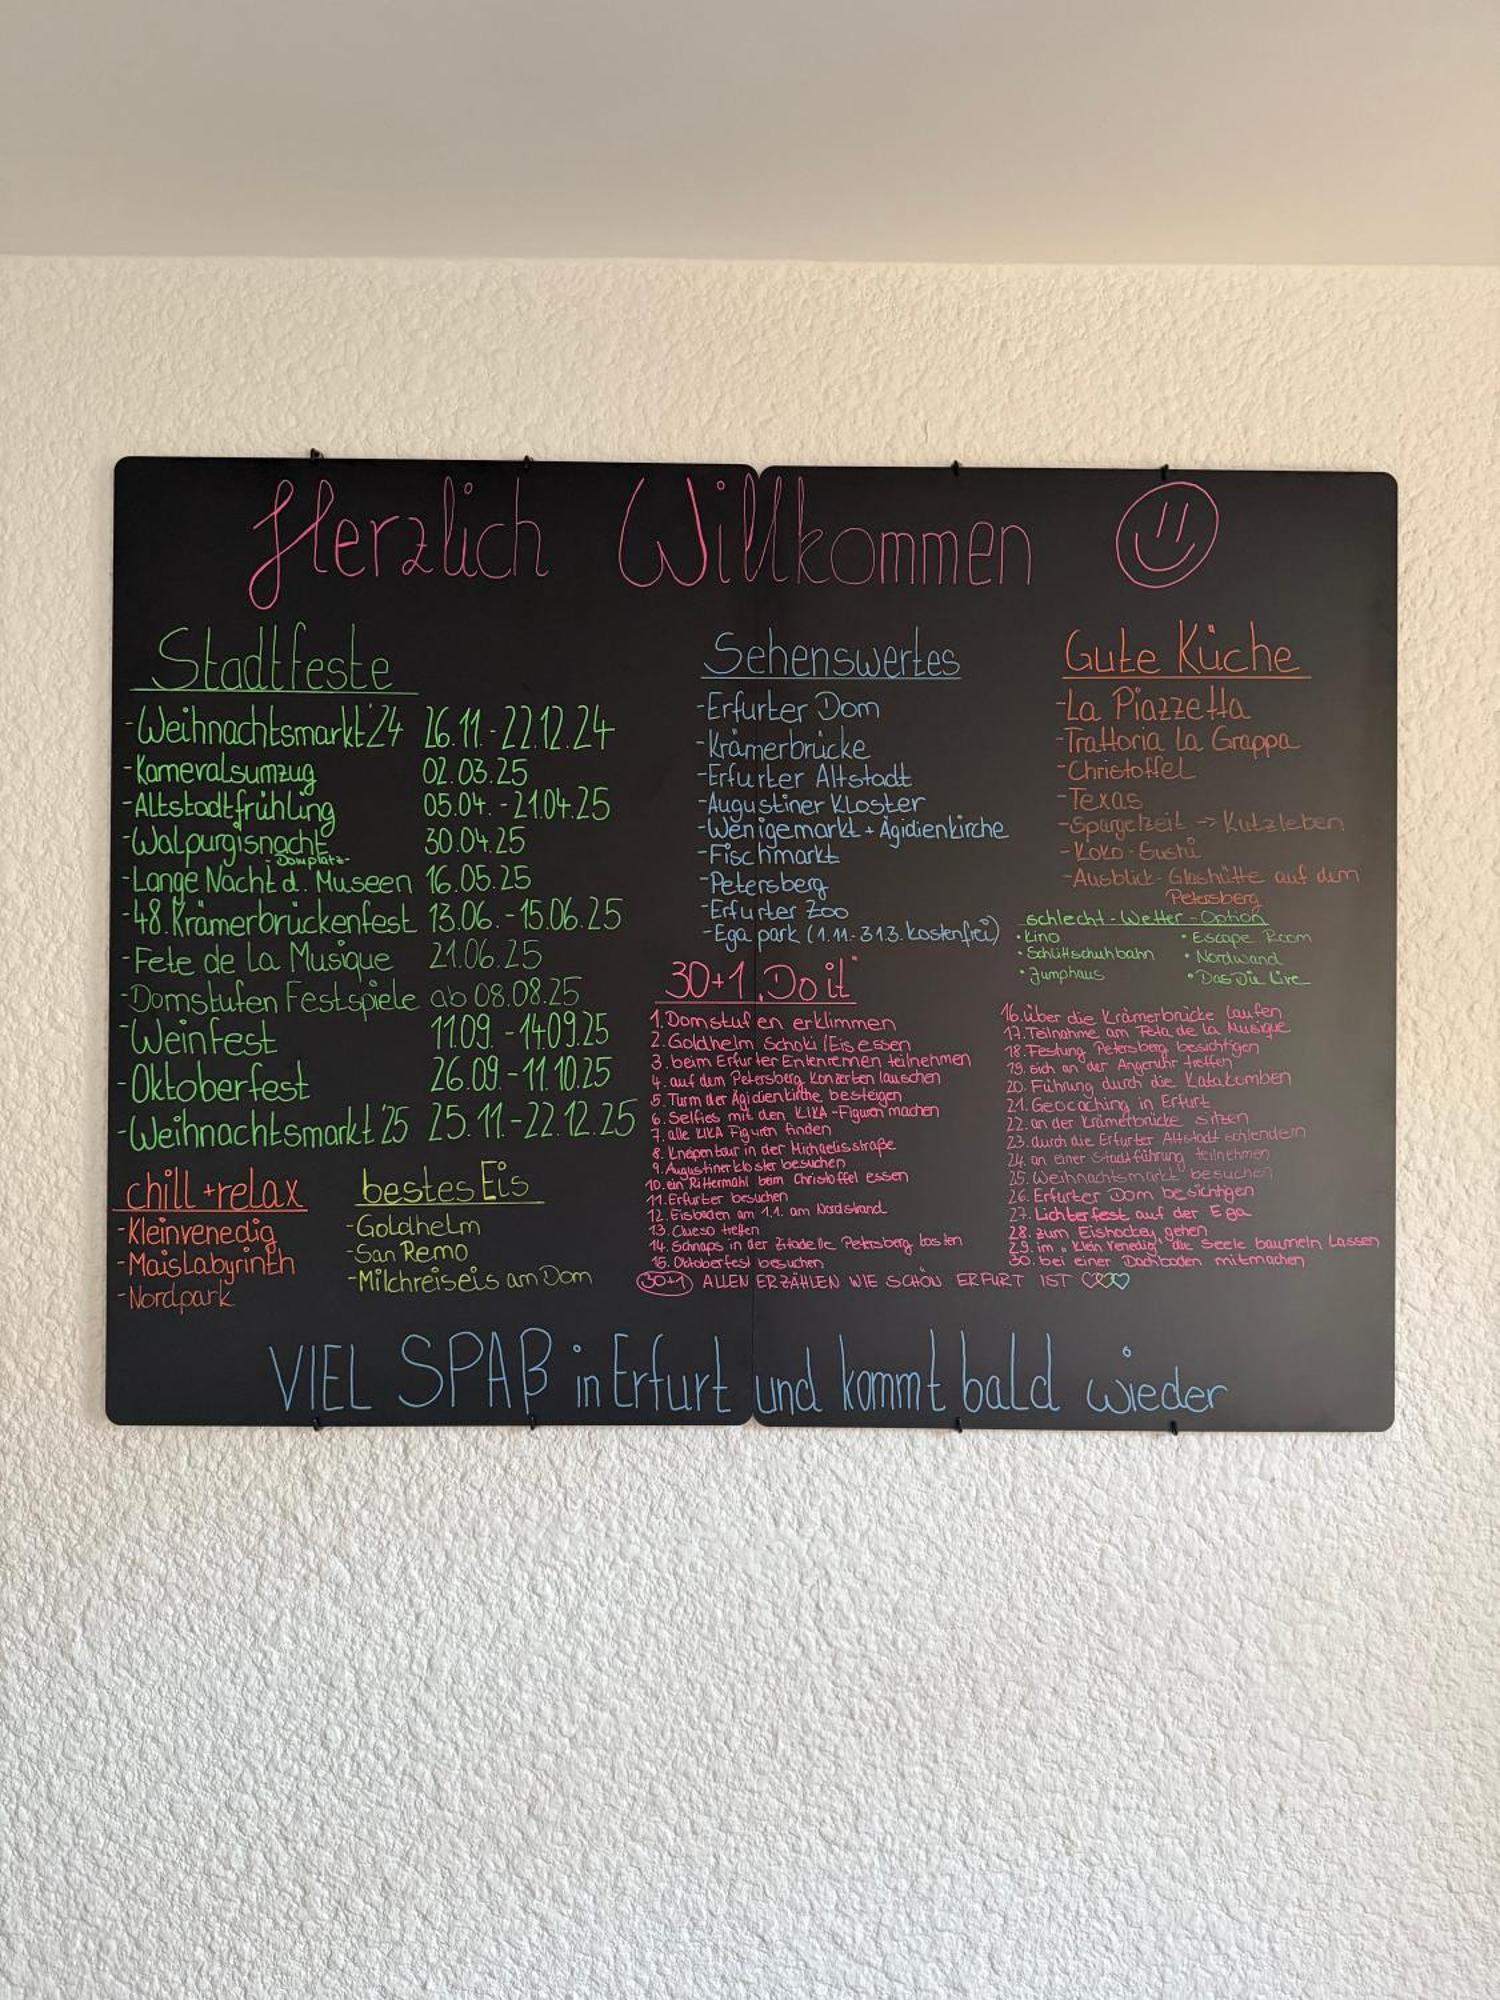 Herzlich Willkommen
Stadtfeste
-Weihnachtsmarkt'24 26.11.-22.12.24
-Karnevalsumzug 02.03.25
-Altstadtfrühling 05.04.-21.04.25
-Walpurgisnacht 30.04.25
-Domplatz-
-Lange Nacht d. Museen 16.05.25
-48. Krämerbrückenfest 13.06.-15.06.25
-Fete de La Musique 21.06.25
-Domstufen Festspiele ab 08.08.25
-Weinfest 11.09.-14.09.25
-Oktoberfest 26.09.-11.10.25
-Weihnachtsmarkt '25 25.11.-22.12.25
chill+relax
-Kleinvenedig
-MaisLabyrinth
-Nordpark
bestes Eis
-Goldhelm
-San Remo
-Milchreiseis am Dom
Sehenswertes
-Erfurter Dom
-Krämerbrücke
-Erfurter Altstadt
-Augustiner Kloster
-Wenigemarkt + Ägidienkirche
-Fischmarkt
-Petersberg
-Erfurter Zoo
-Ega park (1.11.-31.3. kostenfrei)
Gute Küche
-La Piazzetta
-Trattoria La Grappa
-Christoffel
-Texas
-Spargelzeit -> Kutzleben
-Koko-Sushi
-Ausblick-Glashütte auf dem
Petersberg
schlecht-Wetter-Option
• Kino
• Schlittschuhbahn
• Jumphaus
• Escape Room
• Nordwand
• DasDie Live
30+1 „Do it"
1. Domstufen erklimmen
2. Goldhelm Schoki/Eis essen
3. beim Erfurter Entenrennen teilnehmen
4. auf dem Petersberg Konzerten lauschen
5. Turm der Ägidienkirche besteigen
6. Selfies mit den KIKA-Figuren machen
7. alle KIKA Figuren finden
8. Kneipentour in der Michaelisstraße
9. Augustinerkloster besuchen
10. ein Rittermahl beim Christoffel essen
11. Erfurter besuchen
12. Eisbaden am 1.1. am Nordstrand
13. Clueso treffen
14. Schnaps in der Zitadelle Petersberg kosten
15. Oktoberfest besuchen
16. über die Krämerbrücke laufen
17. Teilnahme am Feta de la Musique
18. Festung Petersberg besichtigen
19. sich an der Angeruhr treffen
20. Führung durch die Katakomben
21. Geocaching in Erfurt
22. an der Krämerbrücke sitzen
23. durch die Erfurter Altstadt schlendern
24. an einer Stadtführung teilnehmen
25. Weihnachtsmarkt besuchen
26. Erfurter Dom besichtigen
27. Lichterfest auf der Ega
28. zum Eishockey gehen
29. im „Klein Venedig" die Seele baumeln Lassen
30. bei einer Dachboden mitmachen
30+1 ALLEN ERZÄHLEN WIE SCHÖN ERFURT IST
VIEL SPAß in Erfurt und kommt bald wieder